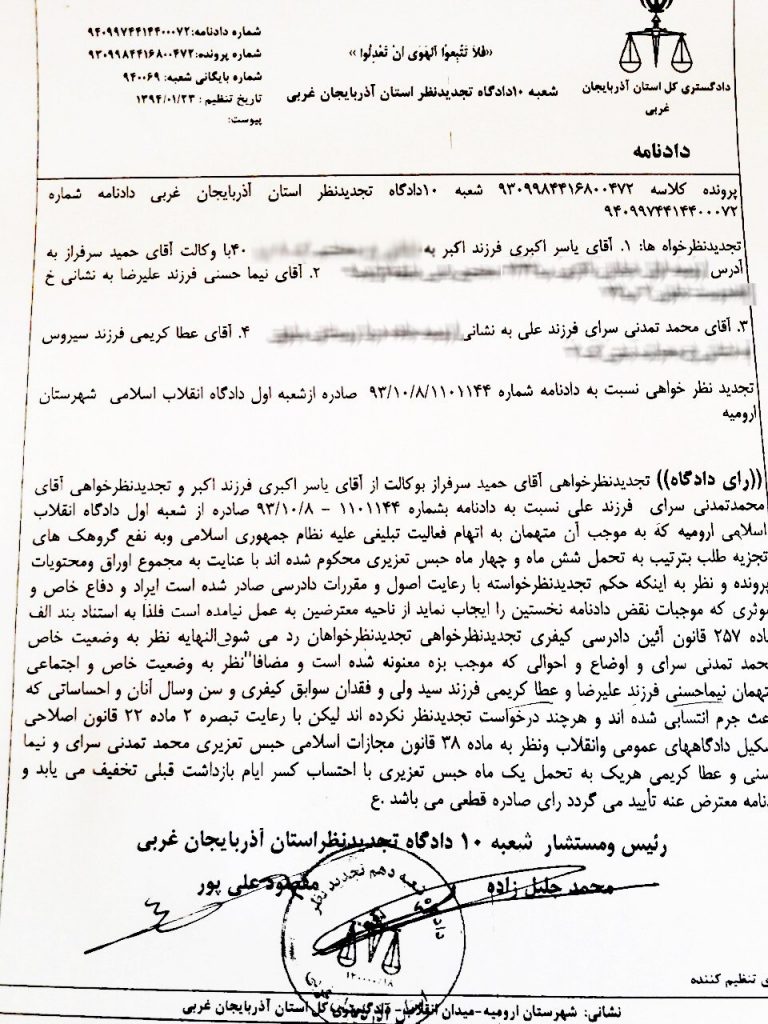 شماره دادنامه: ۹۴۰۹۹۷۴۴۱۴۴۰۰۰۷۲
شماره پرونده: ۹۳۰۹۹۸۴۴۱۶۸۰۰۴۷۲
شماره بایگانی شعبه: ۹۴۰۰۶۹
تاریخ تنظیم : ۱۳۹۴/۰۱/۲۳
پیوست:
«فَلا تَتَّبِعوا اَلهَوی اَنْ تَعْدِلُوا »
شعبه ۱۰دادگاه تجدیدنظر استان آذربایجان غربی
دادگستری کل استان آذربایجان
غربی
دادنامه
پرونده کلاسه ۹۳۰۹۹۸۴۴۱۶۸۰۰۴۷۲ شعبه ۱۰دادگاه تجدیدنظر استان آذربایجان غربی دادنامه شماره
۹۴۰۹۹۷۴۴۱۴۴۰۰۰۷۲
تجدیدنظرخواه ها: ۱. آقای یاسر اکبری فرزند اکبر به ۴۰با وکالت آقای حمید سرفراز به
آدرس ۲. آقای نیما حسنی فرزند علیرضا به نشانی خ
۳. آقای محمد تمدنی سرای فرزند علی به نشانی ۴. آقای عطا کریمی فرزند سیروس
تجدید نظر خواهی نسبت به دادنامه شماره ۹۳/۱۰/۸/۱۱۰۱۱۴۴ صادره ازشعبه اول دادگاه انقلاب اسلامی شهرستان
ارومیه
((رای دادگاه)) تجدیدنظرخواهی آقای حمید سرفراز بوکالت از آقای یاسر اکبری فرزند اکبر و تجدیدنظرخواهی آقای
محمدتمدنی سرای فرزند علی نسبت به دادنامه بشماره ۱۱۰۱۱۴۴ - ۹۳/۱۰/۸ صادره از شعبه اول دادگاه انقلاب
اسلامی ارومیه که به موجب آن متهمان به اتهام فعالیت تبلیغی علیه نظام جمهوری اسلامی وبه نفع گروهک های
تجزیه طلب بترتیب به تحمل شش ماه و چهار ماه حبس تعزیری محکوم شده اند با عنایت به مجموع اوراق ومحتویات
پرونده و نظر به اینکه حکم تجدیدنظرخواسته با رعایت اصول و مقررات دادرسی صادر شده است ایراد و دفاع خاص و
موثری که موجبات نقض دادنامه نخستین را ایجاب نماید از ناحیه معترضین به عمل نیامده است فلذا به استناد بند الف
ماده ۲۵۷ قانون آئین دادرسی کیفری تجدیدنظرخواهی تجدیدنظرخواهان رد می شود.النهایه نظر به وضعیت خاص
محمد تمدنی سرای و اوضاع و احوالی که موجب بزه معنونه شده است و مضافا"نظر به وضعیت خاص و اجتماعی
متهمان نیماحسنی فرزند علیرضا و عطا کریمی فرزند سید ولی و فقدان سوابق کیفری و سن وسال آنان و احساساتی که
عث جرم انتسابی شده اند و هرچند درخواست تجدیدنظر نکرده اند لیکن با رعایت تبصره ۲ ماده ۲۲ قانون اصلاحی
شکیل دادگاههای عمومی وانقلاب ونظر به ماده ۳۸ قانون مجازات اسلامی حبس تعزیری محمد تمدنی سرای و نیما
سنی و عطا کریمی هریک به تحمل یک ماه حبس تعزیری با احتساب کسر ایام بازداشت قبلی تخفیف می یابد و
دنامه معترض عنه تأیید می گردد رای صادره قطعی می باشد .ع
رئیس ومستشار شعبه ۱۰ دادگاه تجدیدنظراستان آذربایجان غربی
محمد جلیل زاده مقصود علی پور
ی تنظیم کننده
نشانی: شهرستان ارومیه-میدان انقلاب- دادگستری کل استان آذربایجان غربی